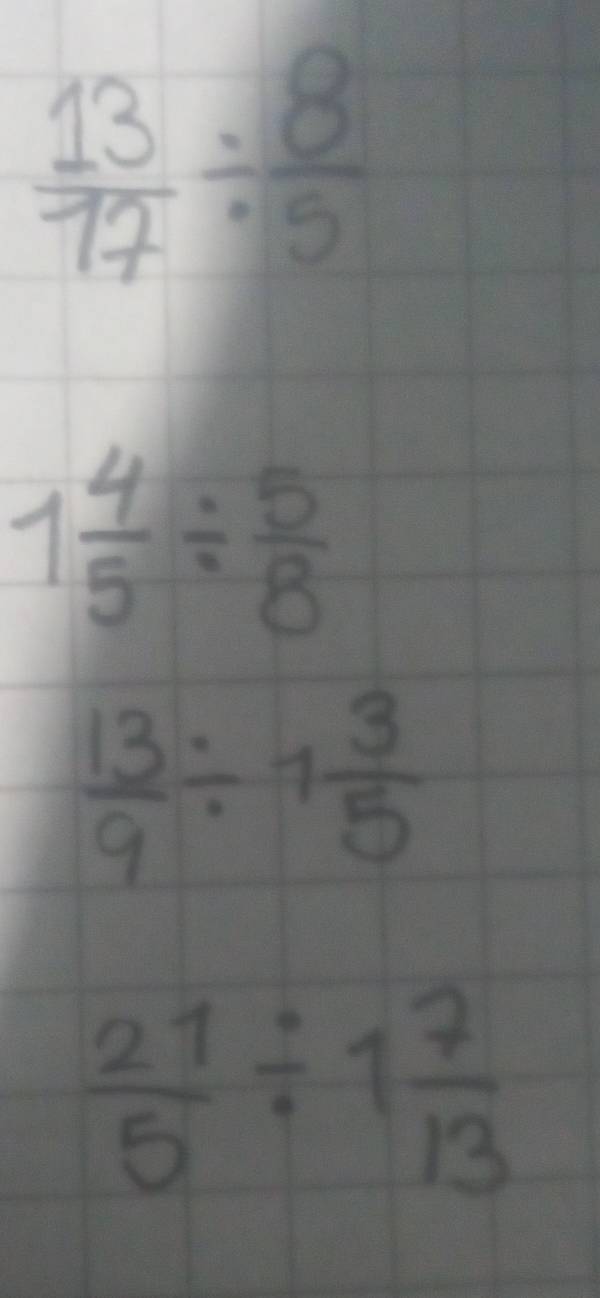 13/17 ÷ 8/5
1 4/5 ÷ 5/8
13/9 ÷ 1 3/5
21/5 ÷ 1 7/13